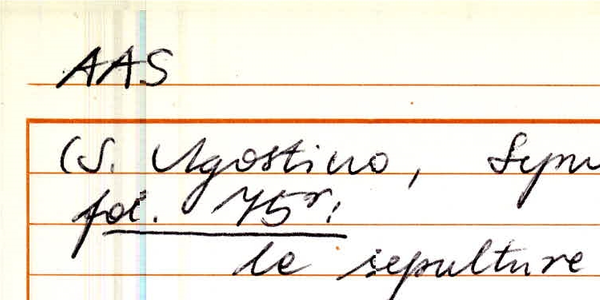 AAS
(S. Agostino,
fol. 75r:
le sepulture